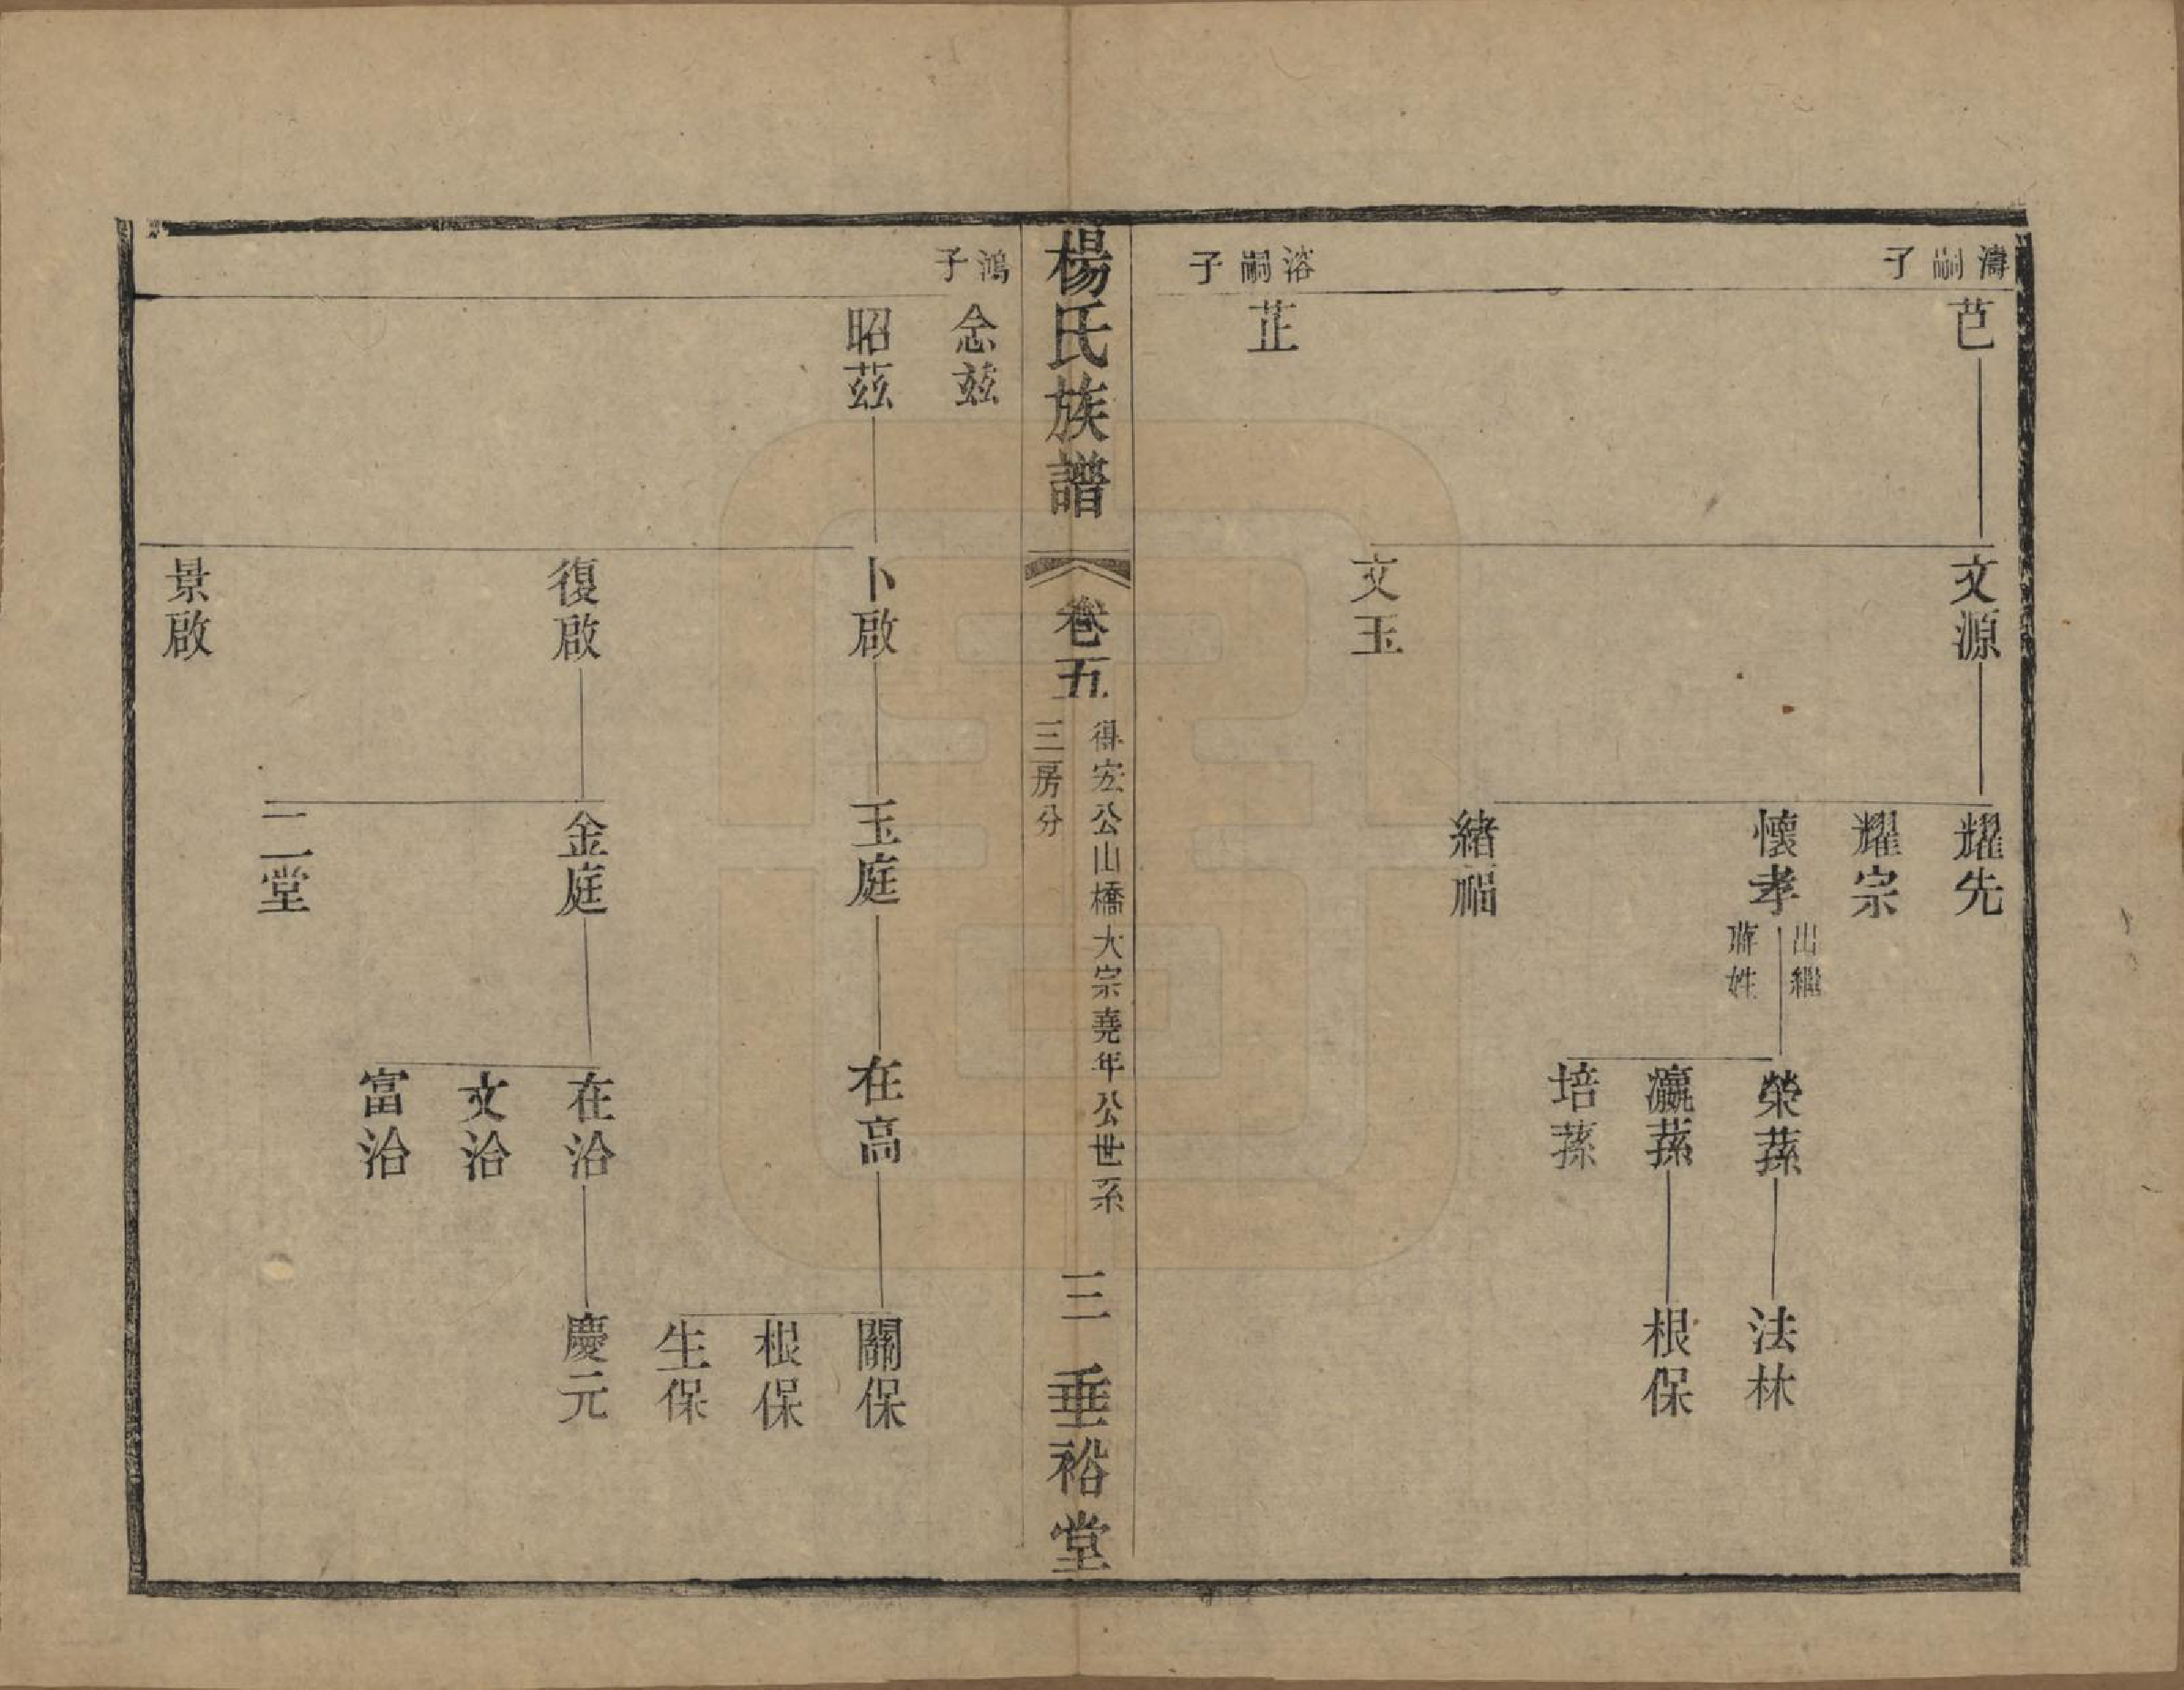 濤嗣子
芑
文源
文玉
耀先
耀宗
懷孝
出繼
蔣姓
緒福
榮蓀
瀛蓀
培蓀
法林
根保
溶嗣子
芷
楊氏族譜
卷五
得宏公山橋大宗堯年公世系
三房分
三
垂裕堂
鴻子
念兹
昭茲
卜啟
復啟
景啟
玉庭
金庭
二堂
在高
在治
文治
富治
關保
根保
生保
慶元